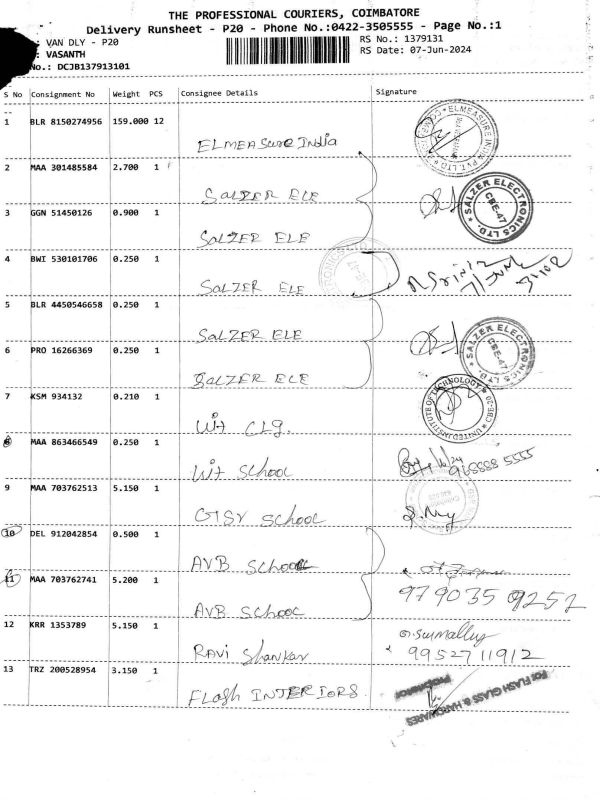 THE PROFESSIONAL COURIERS, COIMBATORE
Delivery Runsheet - P20 - Phone No.:0422-3505555 - Page No.:1
: VAN DLY - P20
RS No.: 1379131
: VASANTH
RS Date: 07-Jun-2024
No.: DCJB137913101
S No Consignment No Weight PCS Consignee Details Signature
1 BLR 8150274956 159.000 12
ELMEASURE India
2 MAA 301485584 2.700 1
SALZER ELE
SALZER ELECTRONICS LTD.
CBE-47
3 GGN 51450126 0.900 1
SALZER ELE
4 BWI 530101706 0.250 1
SALZER ELE
5 BLR 4450546658 0.250 1
SALZER ELE
SALZER ELECTRONICS LTD.
CBE-47
6 PRO 16266369 0.250 1
SALZER ELE
7 KSM 934132 0.210 1
Uit CLg.
UNITED INSTITUTE OF TECHNOLOGY
8 MAA 863466549 0.250 1
Uit School
968888 5555
9 MAA 703762513 5.150 1
School
10 DEL 912042854 0.500 1
AVB School
11 MAA 703762741 5.200 1
979035 9252
AVB School
12 KRR 1353789 5.150 1
RAVI Shankar
9952711912
13 TRZ 200528954 3.150 1
FLASH INTERIORS.
For FLASH GLASS & HARDWARES
Proprietor